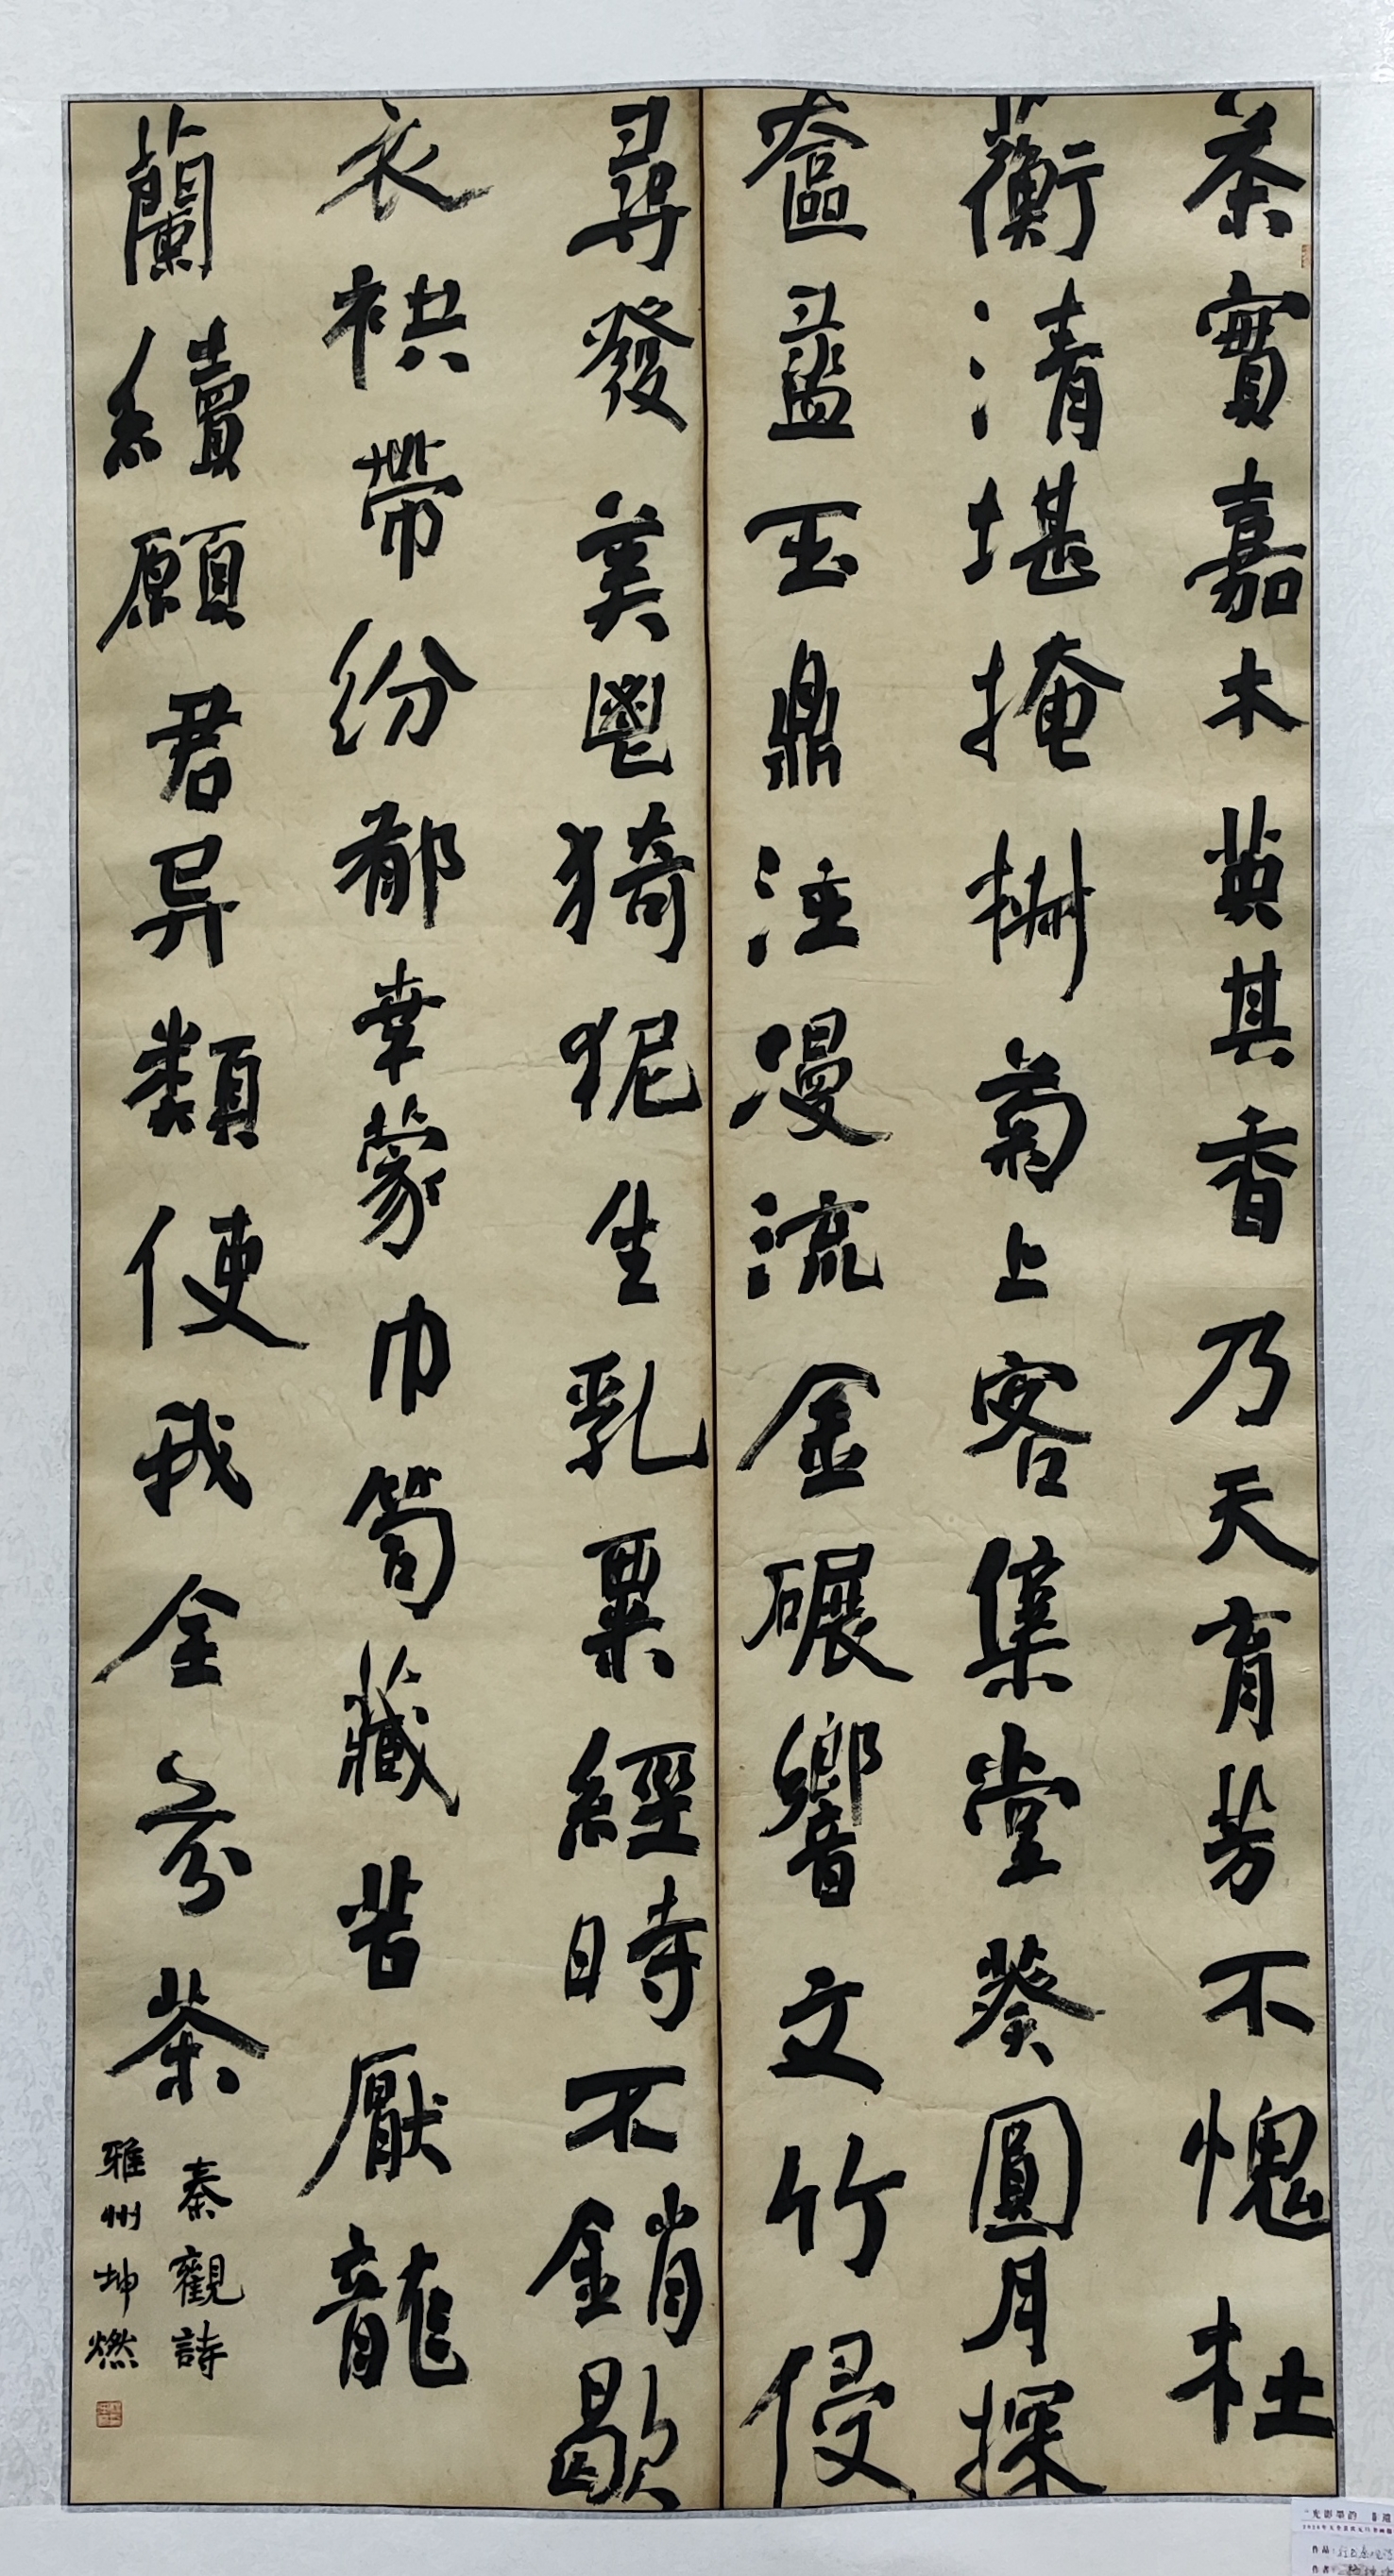 茶實嘉木英其香乃天育芳不愧杜
蘅清堪掩椒菊上客集堂葵圓月探
奩盝玉鼎注漫流金碾響文竹侵
尋發美鬯猗狔生乳粟經時不銷歇
衣袂帶紛郁幸蒙巾笥藏苦厭龍
蘭續願君异類使我全芬茶
秦觀詩
雅州坤燃
光影墨韵
作品：
作者：